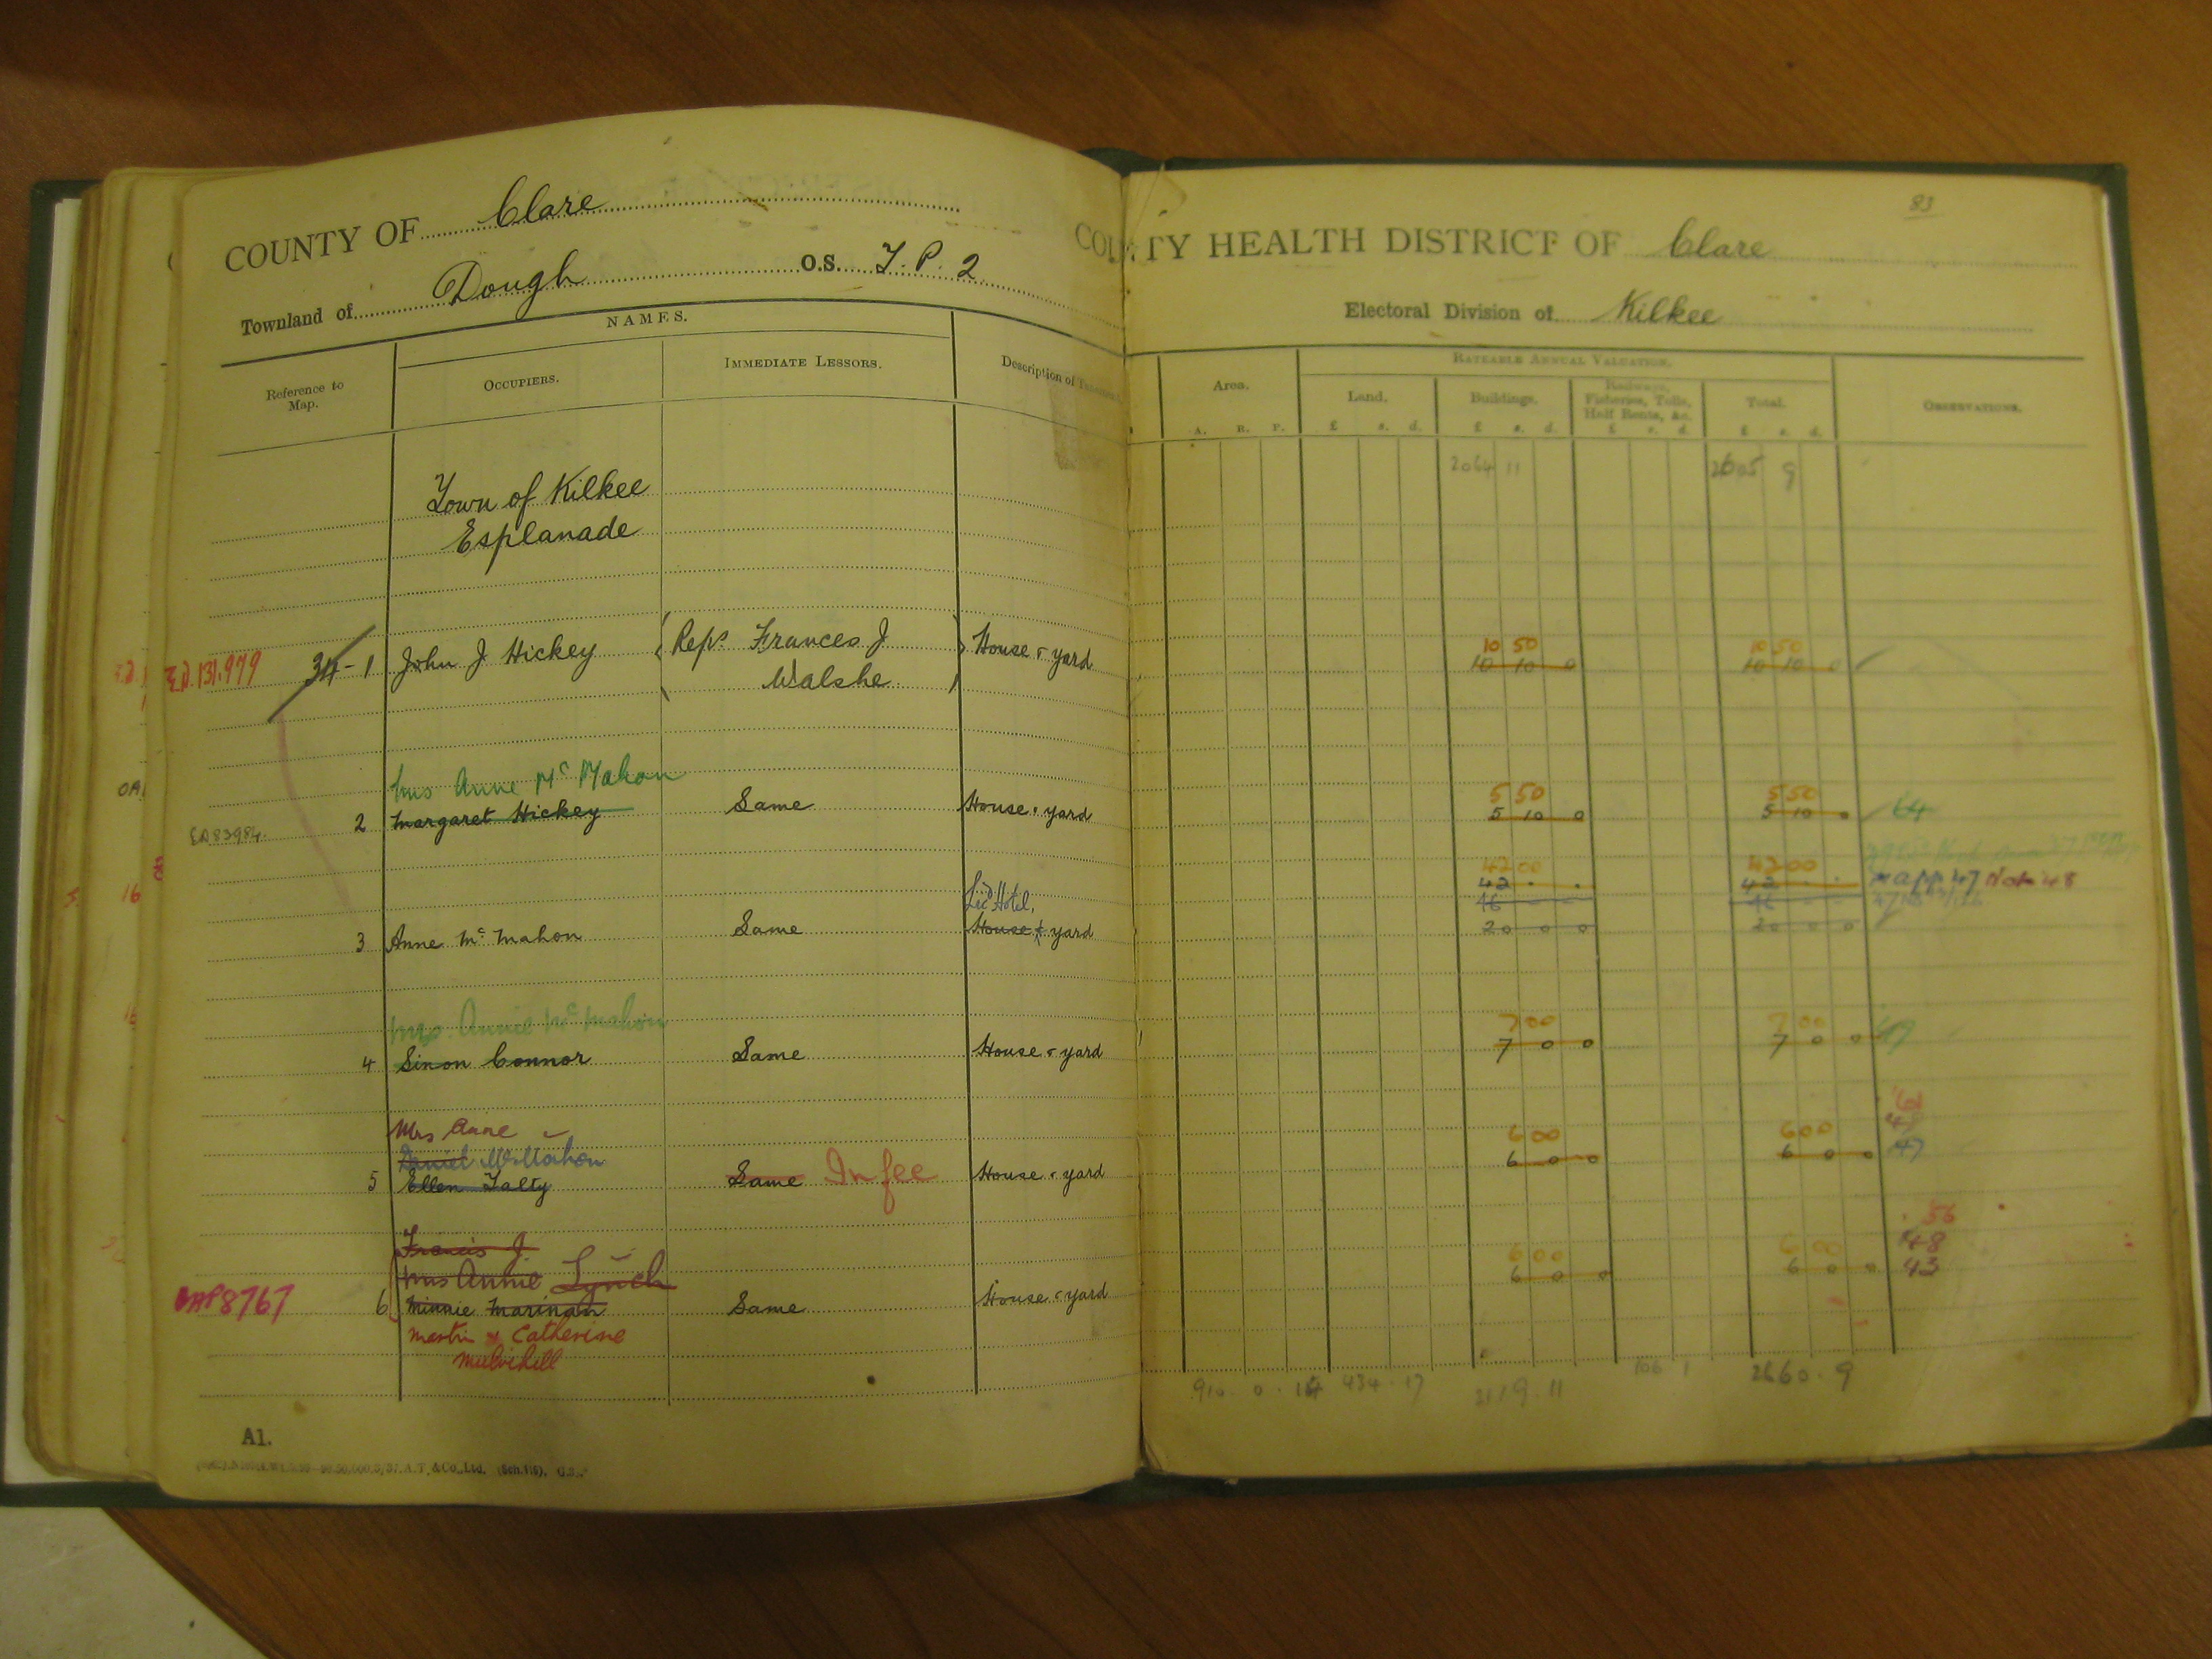 COUNTY OF Clare
Townland of Dough O.S. T.P. 2
NAMES.
Reference to Map.
OCCUPIERS.
IMMEDIATE LESSORS.
Description of
Town of Kilkee
Esplanade
E.D.131.979 34-1 John J Hickey Reps. Frances J Walshe House & yard
Mrs Anne McMahon
ED83984. 2 Margaret Hickey Same House & yard
Licd Hotel,
3 Anne McMahon Same House & yard
Mrs. Annie McMahon
4 Sinon Connor Same House & yard
Mrs Anne
Daniel McMahon
5 Ellen Talty Same In fee House & yard
Francis J.
Mrs Annie Lynch
OAP8767 6 Minnie Marinan Same House & yard
Martin & Catherine
Mulvihill
A1.
83
COUNTY HEALTH DISTRICT OF Clare
Electoral Division of Kilkee
RATEABLE ANNUAL VALUATION.
Area.
Land.
Buildings.
Railways, Fisheries, Tolls, Half Rents, &c.
Total.
OBSERVATIONS.
A. R. P. £ s. d. £ s. d. £ s. d. £ s. d.
2064 11 9
10 50 10 50
10 10 0 10 10 0
5 50 5 50
5 10 0 5 10 0 64
42 00 42 00
42 . . 42 . . app 47 Note 48
46 - - 46 - -
20 0 0 20 0 0
7 00 7 00
7 0 0 7 0 0
'61
6 00 6 00
6 0 0 6 0 0 47
56
6 00 6 00 48
6 0 0 6 0 0 43
910. 0. 434. 17 106 1 2660. 9